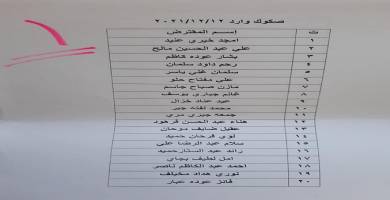 صكوك وارد ٢٠٢١/١٢/١٢
ت إسم المقترض
١ امجد خيري عنيد
٢ علي عبد الحسين صالح
٣ بشار عوده كاظم
٤ رحيم داود سلمان
٥ سلمان غني ياسر
٦ علي مفتاح حلو
٧ مازن صباح جاسم
٨ غانم جباري يوسف
٩ عبد عناد خزال
١٠ محمد لفته جبر
١١ جمعه جبري مري
١٢ هناء عبد الحسن فرهود
١٣ عقيل ضايف مرحان
١٤ لؤي فرحان حميد
١٥ سلام عبد الرضا علي
١٦ رائد عبد الستار حميد
١٧ امل لطيف بجاي
١٨ احمد عبد الكاظم ناصر
١٩ نوري حماد مخيلف
٢٠ فائز عوده عبار